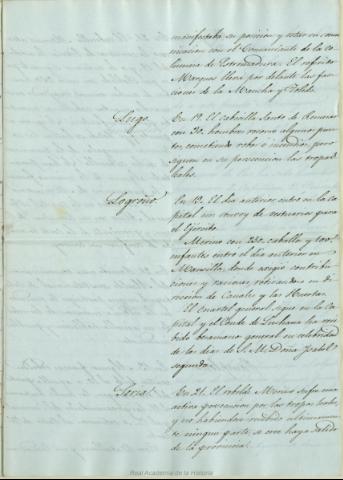 manifestaba su posicion y estar en comu-
nicacion con el Comandante de la co-
lumna de Estremadura. El referido
Marques lleva por delante las fac-
ciones de la Mancha y Toledo.
Lugo. En 19. El Cabecilla Santo de
con 30. hombres recorre algunos pun-
tos, cometiendo robos e incendios, pero
siguen en su persecucion las tropas
leales.
Logroño. En 18. El dia anterior entro en la ca-
pital un convoy de vestuario para
el Ejército.
Merino con 250. caballos y
infantes entró el dia anterior en
Mansilla, donde exigió contribu-
ciones y raciones, retirandose en di-
reccion de Canales y las Huertas.
El Cuartel general sigue en la Ca-
pital, y el Conde de Luchana ha reci-
bido besamano general en celebridad
de los dias de S. M. Doña Isabel
segunda.
Soria. En 21. El rebelde Merino sufre una
activa persecucion por las tropas leales,
y no habiendose recibido ultimamen-
te ninguna parte, se cree haya salido
de la provincia.
Real Academia de la Historia